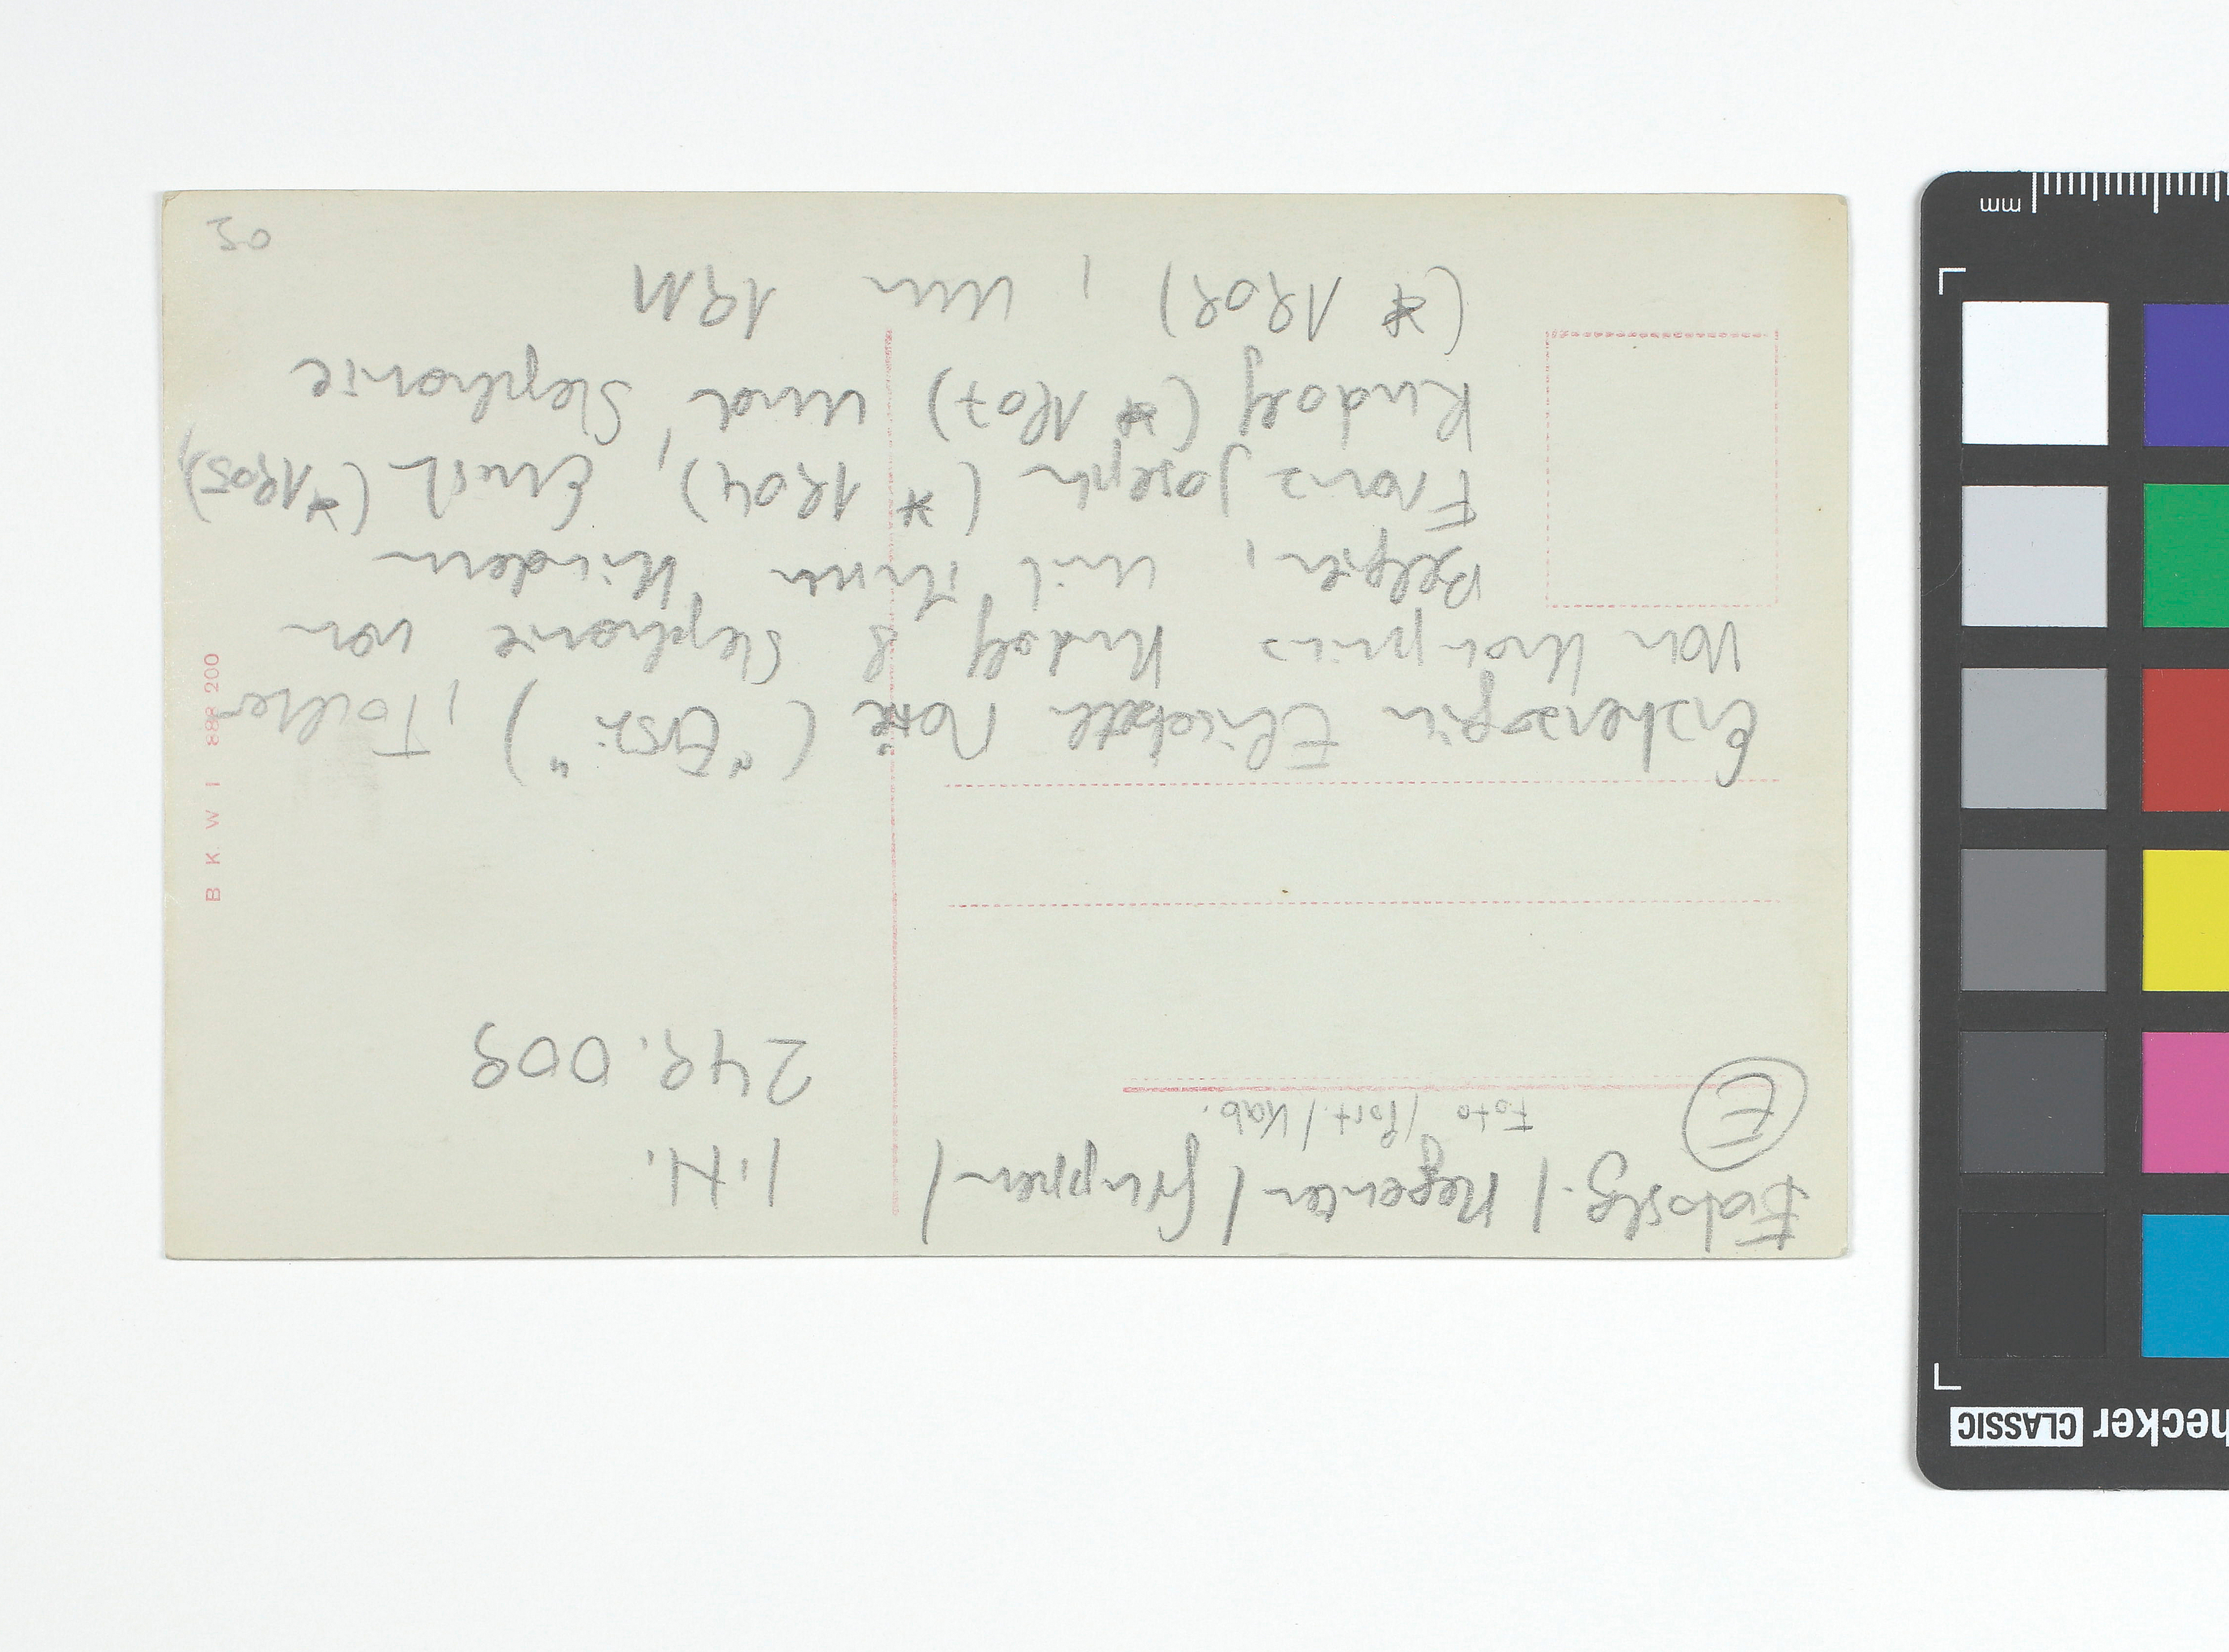 Fotoslg. / Regenten / Gruppen /
Foto / Port / Kab.
E
I. N.
249.009
Erzherzogin Elisabeth Marie ("Erzsi"), Tochter
von Kronprinz Rudolf & Stephanie von
Belgien, mit ihren Kindern
Franz Joseph (* 1904), Ernst (* 1905),
Rudolf (* 1907) und Stephanie
(* 1909), um 1911
B K W I 888 200
mm
hecker CLASSIC